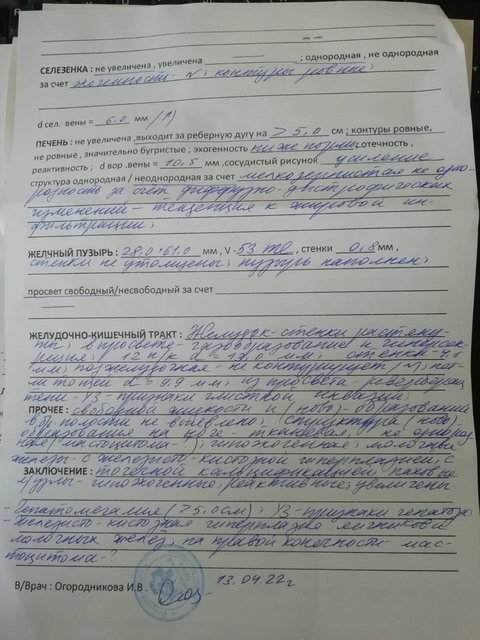 СЕЛЕЗЕНКА : не увеличена , увеличена ; однородная , не однородная
за счет эхогенность - N; контуры ровные;
d сел. вены = 6,0 мм /N)
ПЕЧЕНЬ : не увеличена ,выходит за реберную дугу на > 5,0 см ; контуры ровные,
не ровные , значительно бугристые ; эхогенность ниже нормы ,отечность ,
реактивность ; d вор .вены = 10,5 мм ,сосудистый рисунок усиление
структура однородная / неоднородная за счет мелкозернистая не одно-
родность за счет диффузно-дистрофических
изменений - тенденция к жировой ин-
фильтрации;
ЖЕЛЧНЫЙ ПУЗЫРЬ : 28,0*61,0 мм , V - 53 ml , стенки 0,8 мм ,
стенки не утолщены; пузырь наполнен;
просвет свободный/несвободный за счет
ЖЕЛУДОЧНО-КИШЕЧНЫЙ ТРАКТ : Желудок - стенки растяну-
ты; в просвете - газообразование и гиперсек-
реция; 12 п/к d = мм; стенки -
мм; поджелудочная - не контурирует /N);
тощей d = 9,9 мм; из просвета -
УЗ - признаки глистной инвазии;
ПРОЧЕЕ : свободной жидкости и (ново)-образований
в бр. полости не выявлено; структура (ново)
образования на тканевая, не однород-
ная (мастицитома-?); гипоэхогенная молочные
железы - с железисто-кистозной гиперплазией с
ЗАКЛЮЧЕНИЕ : точечной кальцификацией; паховые
л/узлы - гипоэхогенные, реактивные; увеличены.
- Гепатомегалия (>5,0см); УЗ-признаки гепатоза;
- железисто-кистозная гиперплазия яичников и
молочных желез; на правой конечности - мас-
тоцитома-?
В/Врач : Огородникова И.В . 13.04.22г